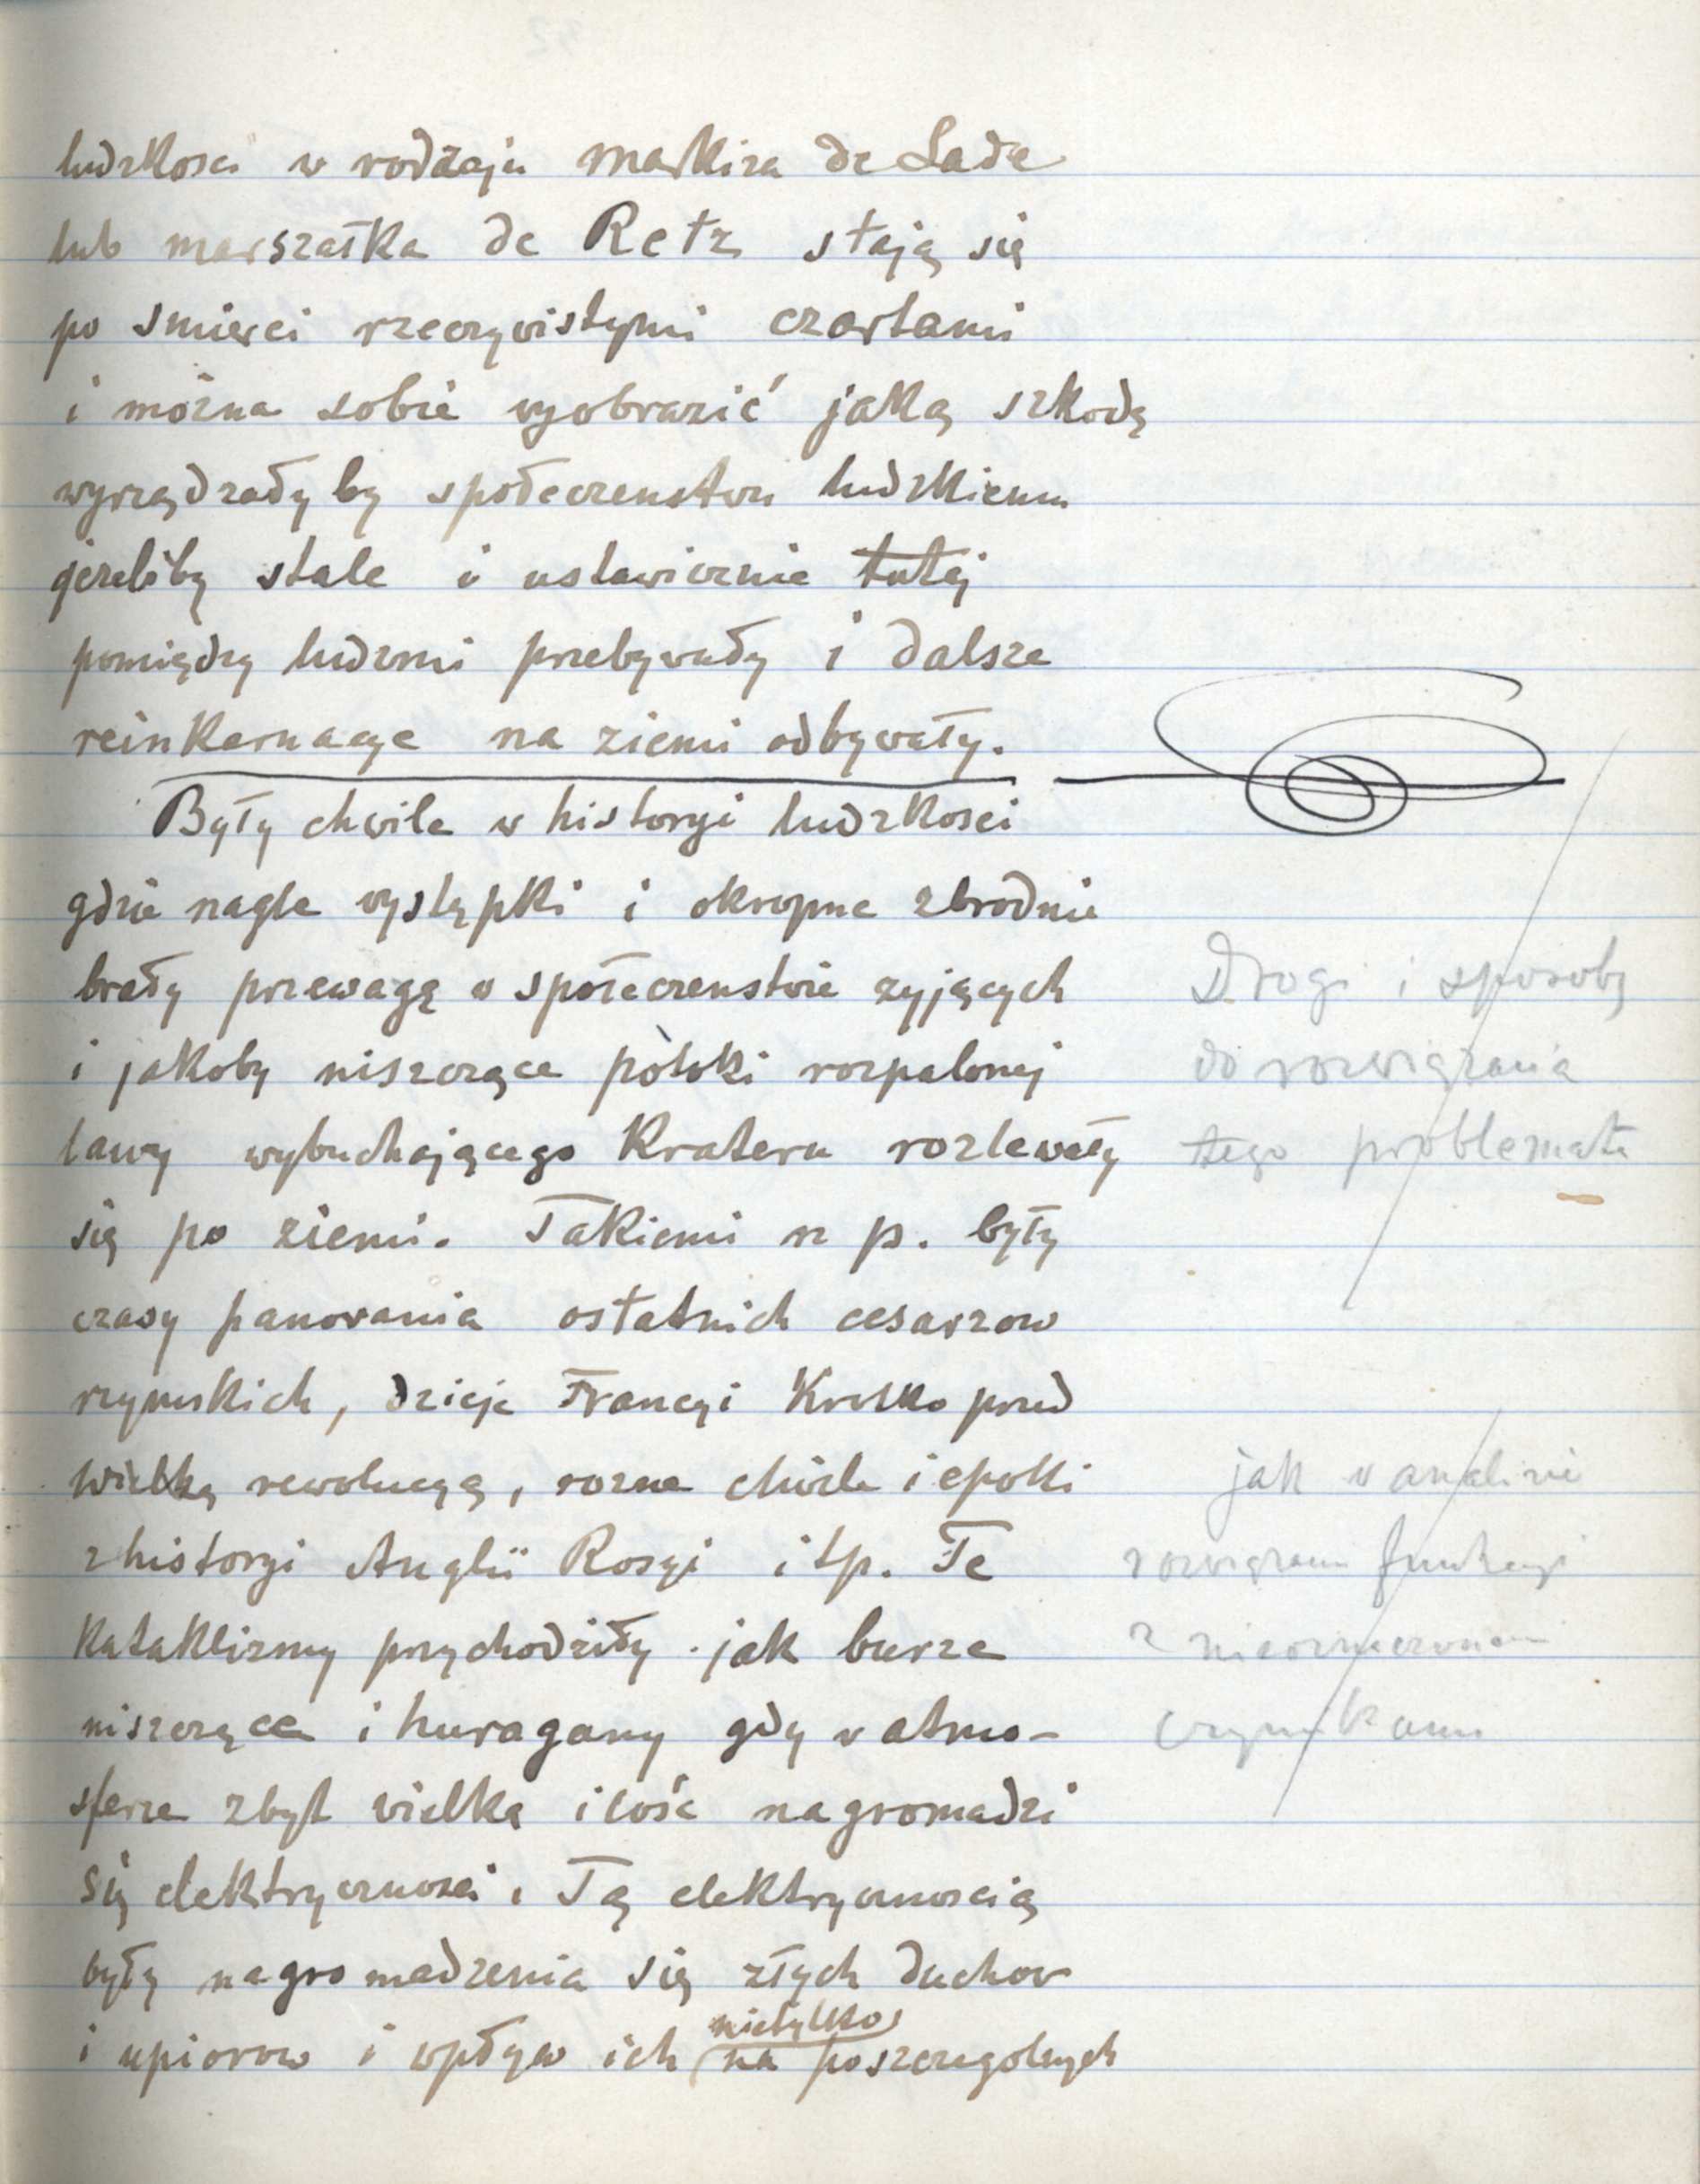 ludzkosci w rodzaju markiza de Sade
lub marszałka de Retz stają się
po smierci rzeczywistymi czartami
i mozna sobie wyobrazić jaką szkodę
wyrządzałyby społeczenstwu ludzkiemu
jezeliby stale i ustawicznie tutej
pomiędzy ludzmi przebywały i dalsze
reinkarnacye na ziemi odbywały.
Były chwile w historyi ludzkosci
gdzie nagle występki i okropne zbrodnie
brały przewagę w społeczenstwie zyjących
i jakoby niszczące potoki rozpalonej
lawy wybuchającego Krateru rozlewały
się po ziemi. Takiemi n p. były
czasy panowania ostatnich cesarzow
rzymskich, dzieje Francyi Krotko przed
wielką rewolucyą, rozne chwile i epoki
z historyi Anglii Rosyi i tp. Te
Kataklizmy przychodziły jak burze
niszczące i huragany gdy w atmo-
sferze zbyt wielka ilość nagromadzi
się elektrycznosci. Tą elektrycznoscią
były nagromadzenia się złych duchow
nietylko
i upiorow i wpływ ich na poszczegolnych
Drogi i sposoby
do rozwiązania
tego problematu
jak w analizie
rozwiązanie funkcyi
z nieoznaczonemi
czynnikami